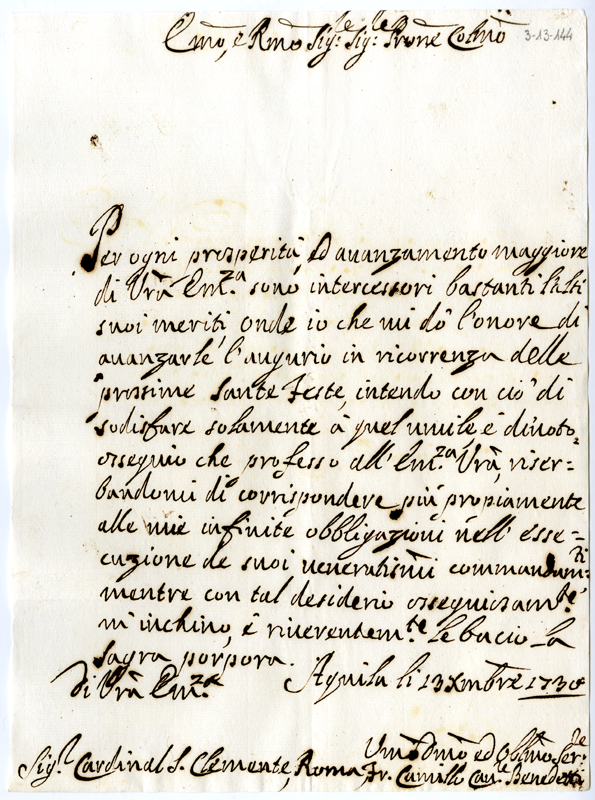 Em̃o, e Rm̃o Sig.re Sig.re Prõne Colm̃o
3-13-144
Per ogni prosperità, ed auanzamento maggiore
di Vr̃a Em.za sono intercessori bastanti l'alti
suoi meriti onde io che mi dò l'onore di
auanzarle l'augurio in ricorrenza delle
prossime Sante Feste, intendo con ciò di
sodisfare solamente à quel umile è diuoto
ossequio che professo all'Em.za Vr̃a, riser=
bandomi di corrispondere più propiamente
alle mie infinite obbligazioni nell'esse=
cuzione de suoi ueneratissm̃i commandam.ti
mentre con tal desiderio ossequiosam.te
m'inchino, è riuerentem.te le bacio la
sagra porpora.
Di Vr̃a Em.za Aquila li 13 Xmbre 1730
Um̃o Dm̃o ed Obl̃mo Ser.re
Sig.r Cardinal S. Clemente, Roma, Fr. Camillo Cau.e Benedetti